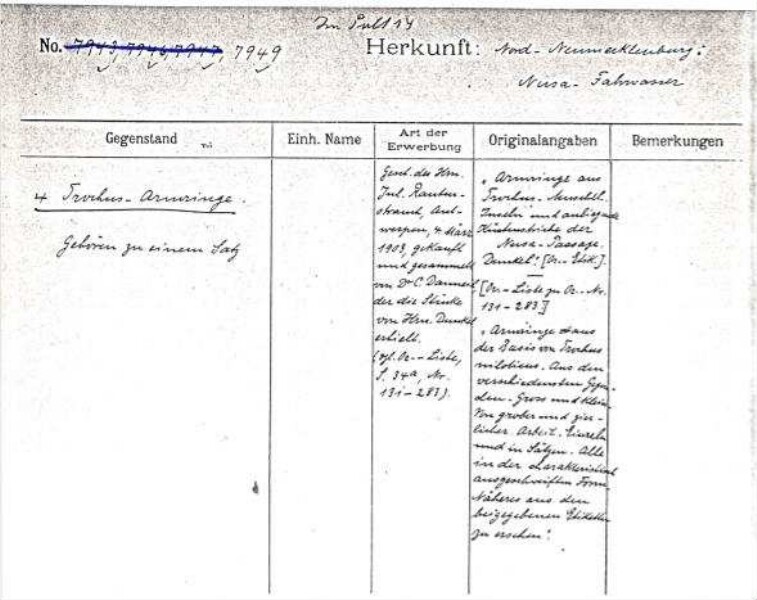 Im Pult 14
No. 7943, 7946, 7947, 7949
Herkunft: Nord-Neumecklenburg:
Nusa-Fahrwasser
Gegenstand
Einh. Name
Art der
Erwerbung
Originalangaben
Bemerkungen
4 Trochus-Armringe.
Gehören zu einem Satz
Gesch. des Hrn.
Jul. Rauten-
strauch, Ant-
werpen, 4. März
1903, gekauft
und gesammelt
von Dr C. Danneil
der die Stücke
von Hrn. Dunkel
erhielt.
(vgl. Or.-Liste,
S. 34a, Nr.
131-283).
„Armringe aus
Trochus-Muschel.
Inseln und anliegende
Küstenstriche der
Nusa-Passage.
Dunkel". [Or.-Etik.].
[Or.-Liste zu Or.-Nr.
131-283]
„Armringe aus
der Basis von Trochus
niloticus. Aus den
verschiedensten Gegen-
den. Gross und klein.
Von grober und zier-
licher Arbeit. Einzeln
und in Sätzen. Alle
in der charakteristisch
ausgeschweiften Form.
Näheres aus den
beigegebenen Etiketten
zu ersehen."